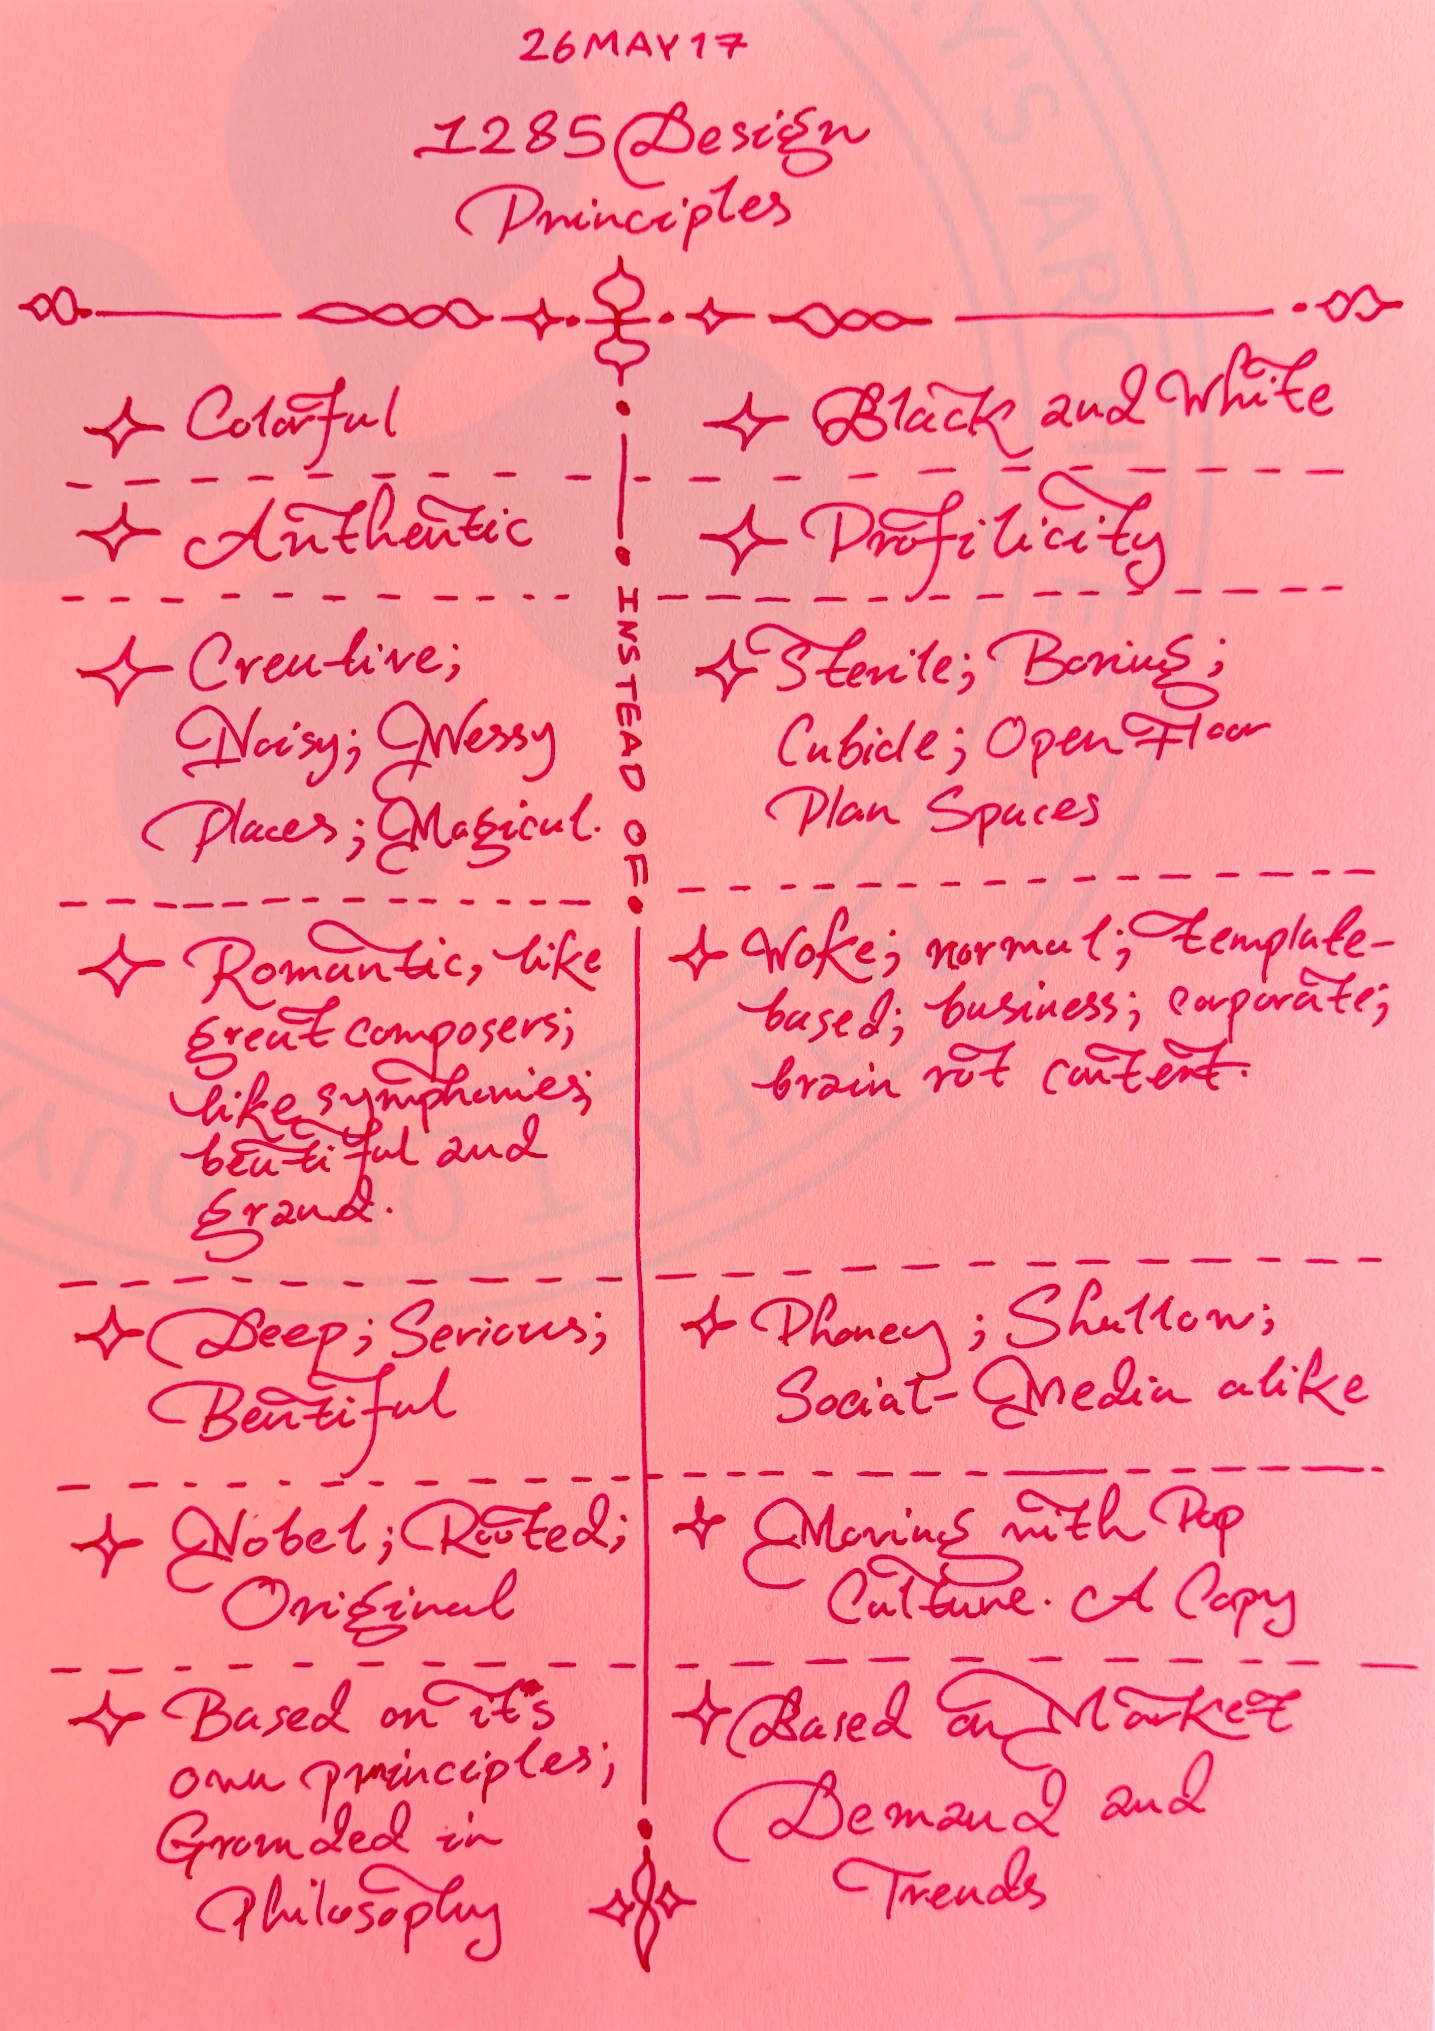 26MAY17
1285 Design
Principles
Colorful
Authentic
Creative;
Noisy; Messy
Places; Magical.
Romantic, like
great composers;
like symphonies;
beautiful and
grand.
Deep; Serious;
Beautiful
Nobel; Rooted;
Original
Based on it's
own principles;
Grounded in
Philosophy
INSTEAD OF
Black and White
Profilicity
Sterile; Boring;
Cubicle; Open Floor
Plan Spaces
Woke; normal; template-
based; business; corporate;
brain rot content.
Phoney; Shallow;
Social-Media alike
Moving with Pop
Culture. A Copy
Based on Market
Demand and
Trends